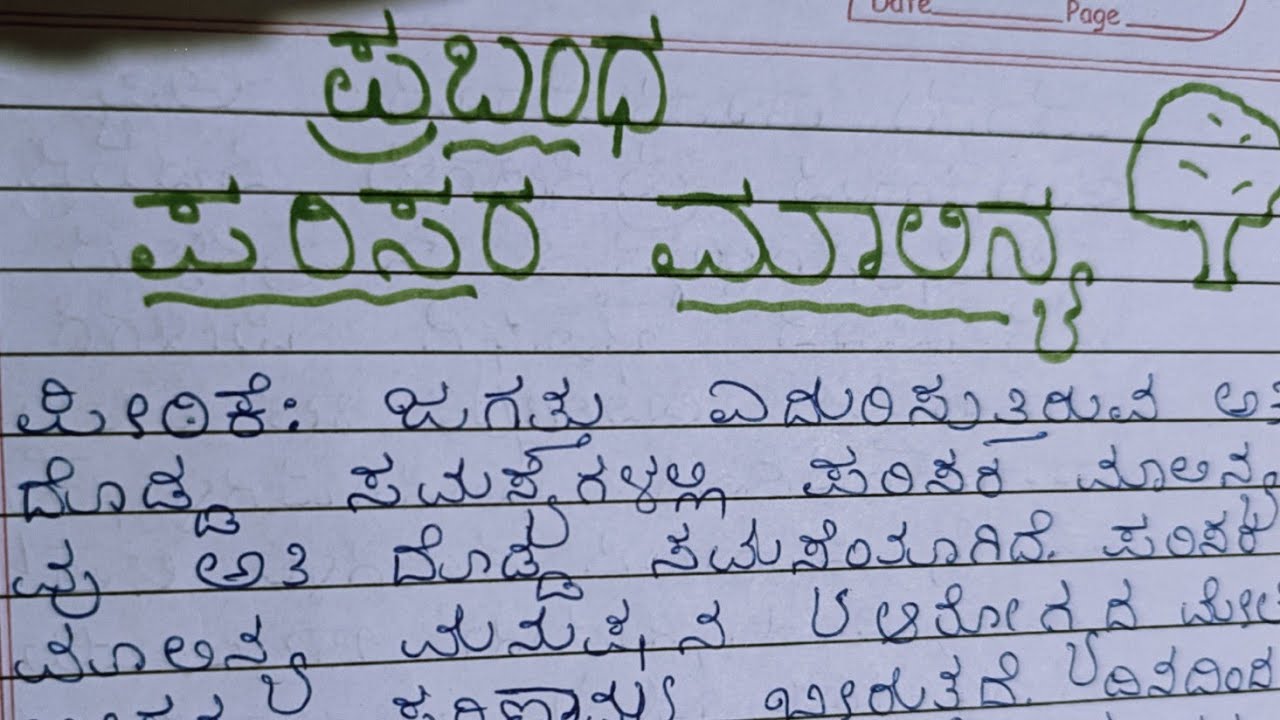 Date Page
ಪ್ರಬಂಧ
ಪರಿಸರ ಮಾಲಿನ್ಯ
ಪೀಠಿಕೆ: ಜಗತ್ತು ಎದುರಿಸುತ್ತಿರುವ ಅತಿ
ದೊಡ್ಡ ಸಮಸ್ಯೆಗಳಲ್ಲಿ ಪರಿಸರ ಮಾಲಿನ್ಯ
ವು ಅತಿ ದೊಡ್ಡ ಪರಿಸರ
ಮಾಲಿನ್ಯ ಮನುಷ್ಯನ ಆರೋಗ್ಯದ ಮೇಲೆ
ಬೀರುತ್ತದೆ. ದಿನದಿಂದ